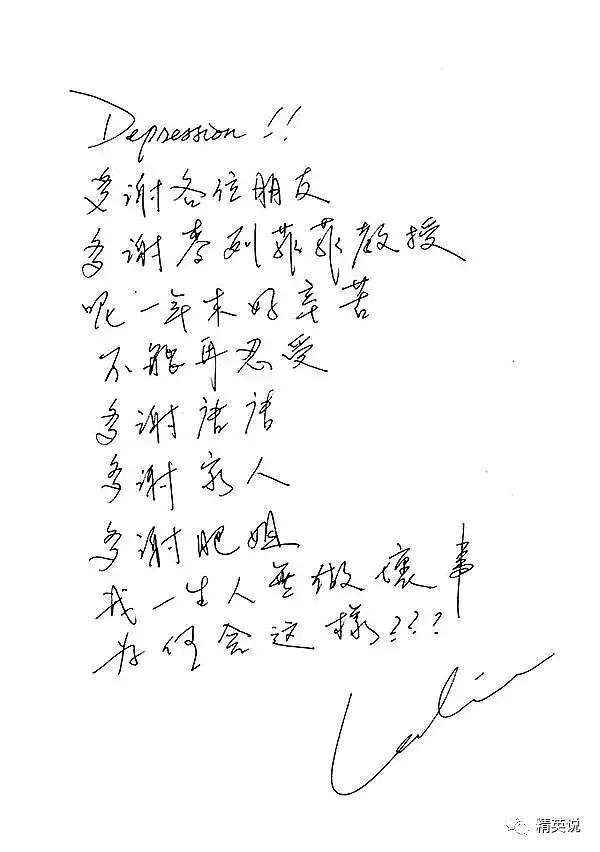 Depression!!
多谢各位朋友
多谢李列菲菲教授
呢一年来好辛苦
不能再忍受
多谢唐唐
多谢家人
多谢肥姐
我一生人無做壞事
为何会这樣???
Leslie
精英说